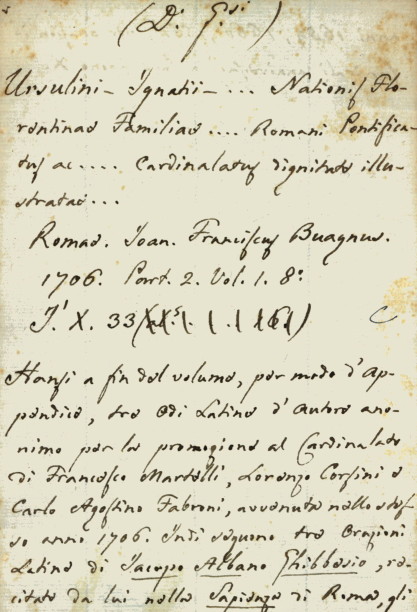 (D. G.si)
Ursulini - Ignatii - ... Nationis Flo-
rentinae Familiae .... Romani Pontifica-
tus ac .... Cardinalatus dignitate illu-
stratae ...
Romae. Joan. Franciscus Buagnus.
1706. Part. 2. Vol. 1. 8°
I.' X. 33 C
Hansi a fin del volume, per modo d'Ap-
pendice, tre Odi Latine d'Autore ano-
nimo per la promozione al Cardinalato
di Francesco Martelli, Lorenzo Corsini e
Carlo Agostino Fabroni, avvenuta nello stes-
so anno 1706. Indi seguono tre Orazioni
Latine di Iacopo Albano Ghibbesio, re-
citate da lui nella Sapienza di Roma, gli